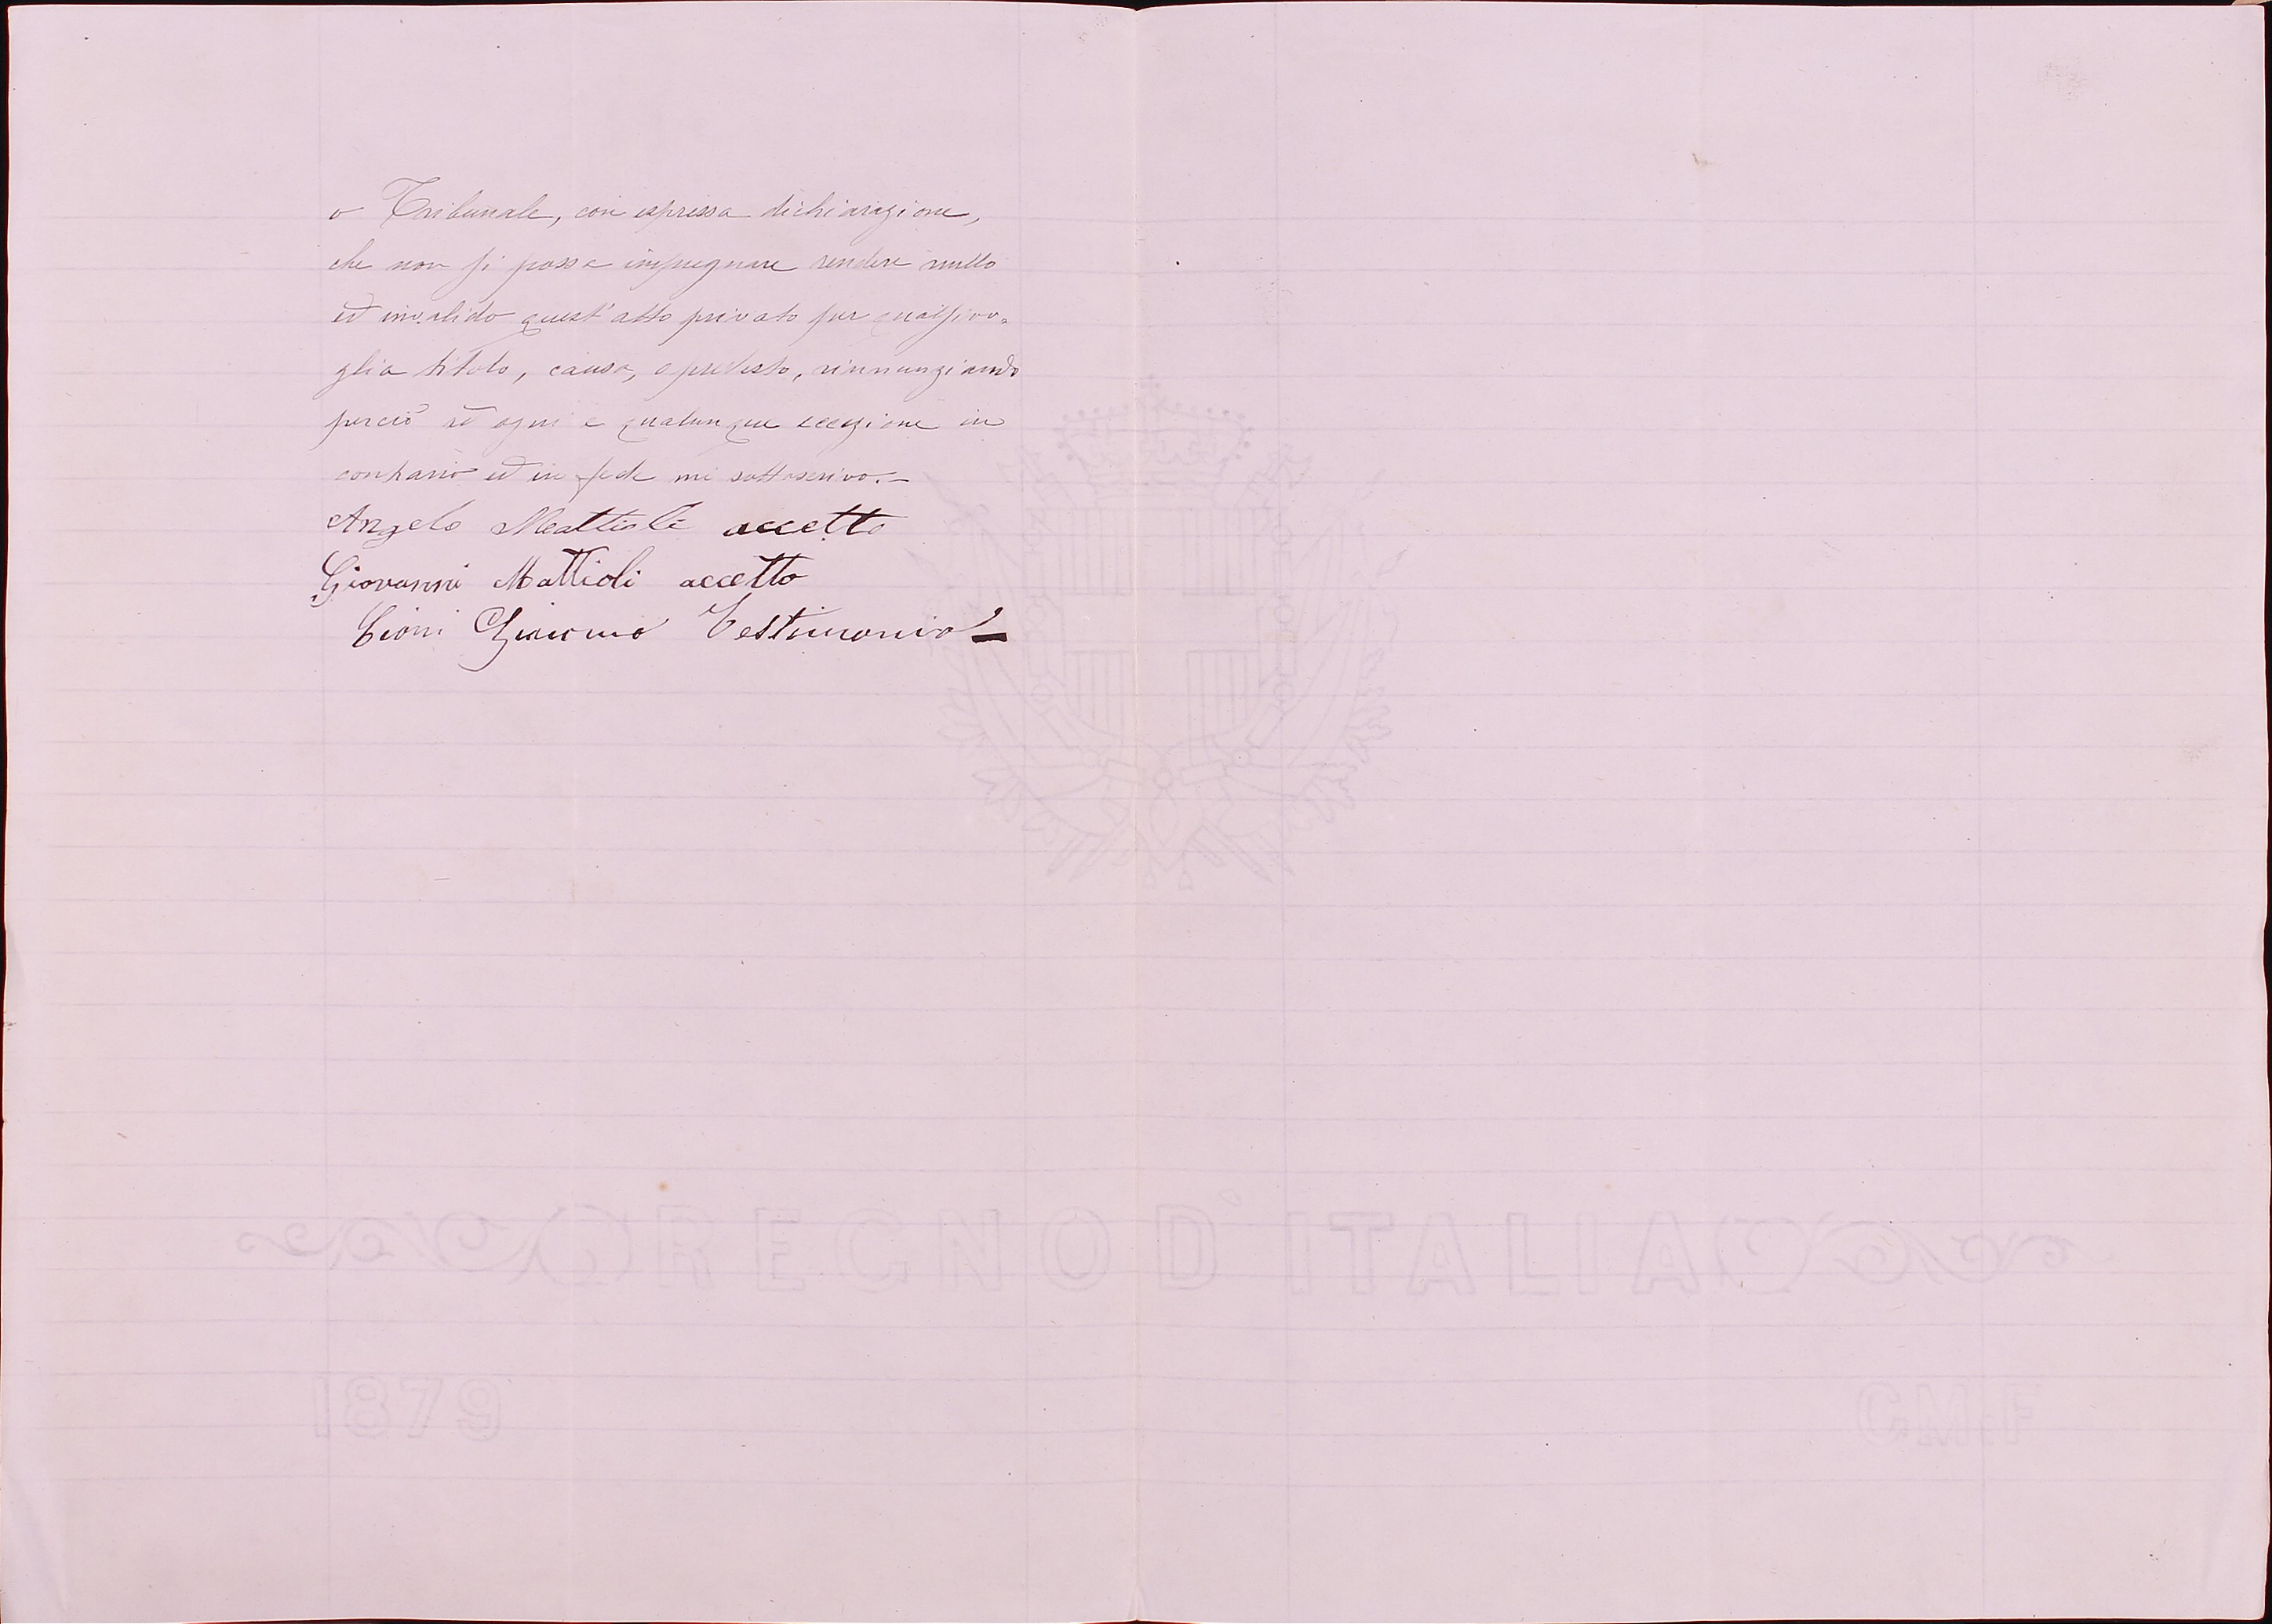 o Tribunale, con espressa dichiarazione,
che non si possa impugnare rendere nullo
ed invalido quest'atto privato per qualsivo=
glia titolo, causa, o pretesto, rinnunziando
perciò ad ogni e qualunque eccezione in
contrario ed in fede mi sottoscrivo.—
Angelo Mattioli accetto
Giovanni Mattioli accetto
Cioni Giacomo Testimonio—
REGNO D'ITALIA
1879
C.M.F